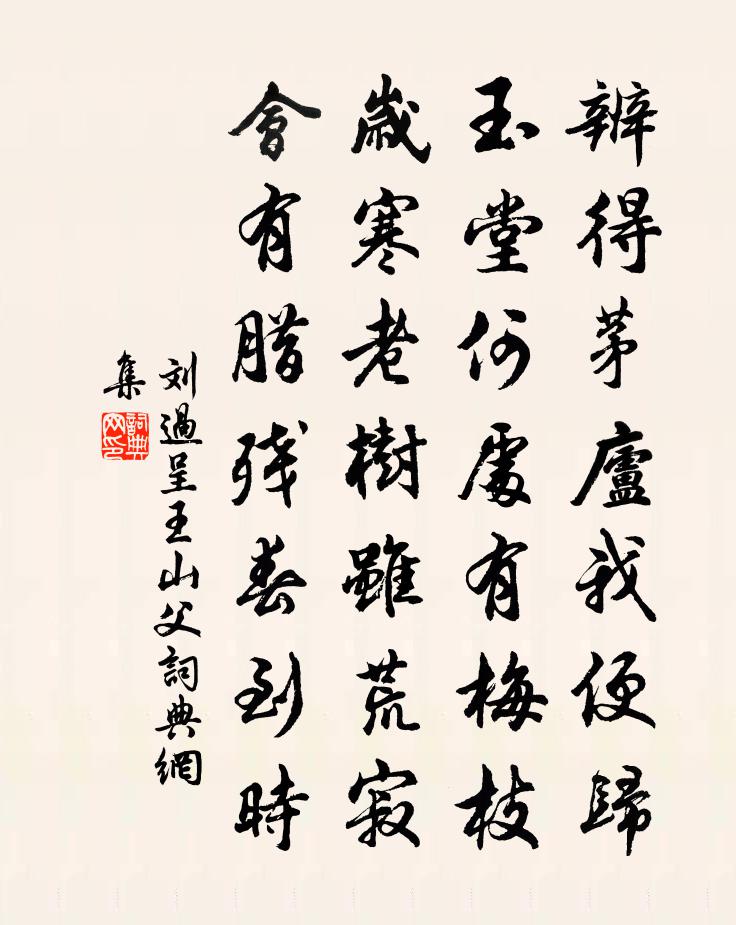 辨得茅廬我便歸
玉堂何處有梅枝
歲寒老樹雖荒寂
會有腊殘春到時
刘過呈王山父詞典網
集
詞典
网印